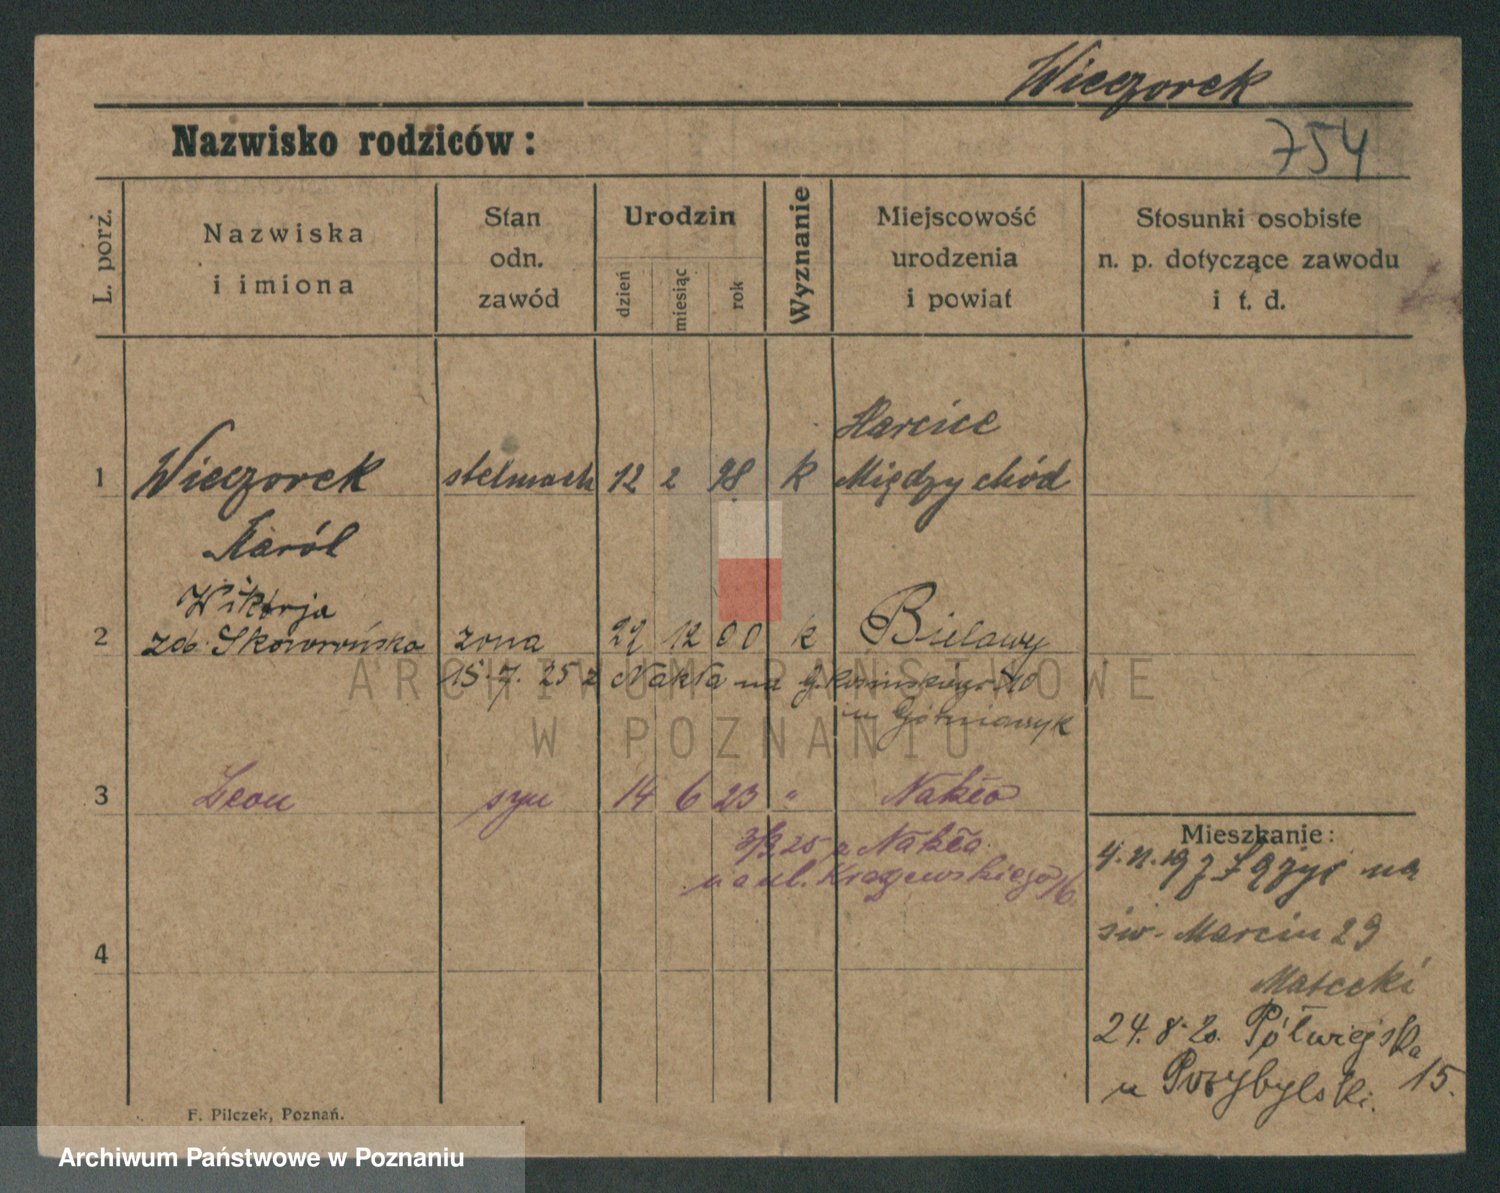 Wieczorek
Nazwisko rodziców:
754
L. porz.
Nazwiska
i imiona
Stan
odn.
zawód
Urodzin
dzień
miesiąc
rok
Wyznanie
Miejscowość
urodzenia
i powiat
Stosunki osobiste
n. p. dotyczące zawodu
i t. d.
1 Wieczorek stelmach 12 2 98 k Międzychód
Karól
Wiktorja
2 zdb. Skowrońska żona 29 12 00 k Bielawy
15.7.25 z Nakła na
3 Leon syn 14 6 23 " Nakło
3/9 25 z Nakła
na ul. Kraszewskiego 16
4
Mieszkanie:
4.11.19 z na
św. Marcin 29
Matecki
24.8.20. Półwiejska
u Przybylski. 15.
F. Pilczek, Poznań.
ARCHIWUM PAŃSTWOWE
W POZNANIU
Archiwum Państwowe w Poznaniu